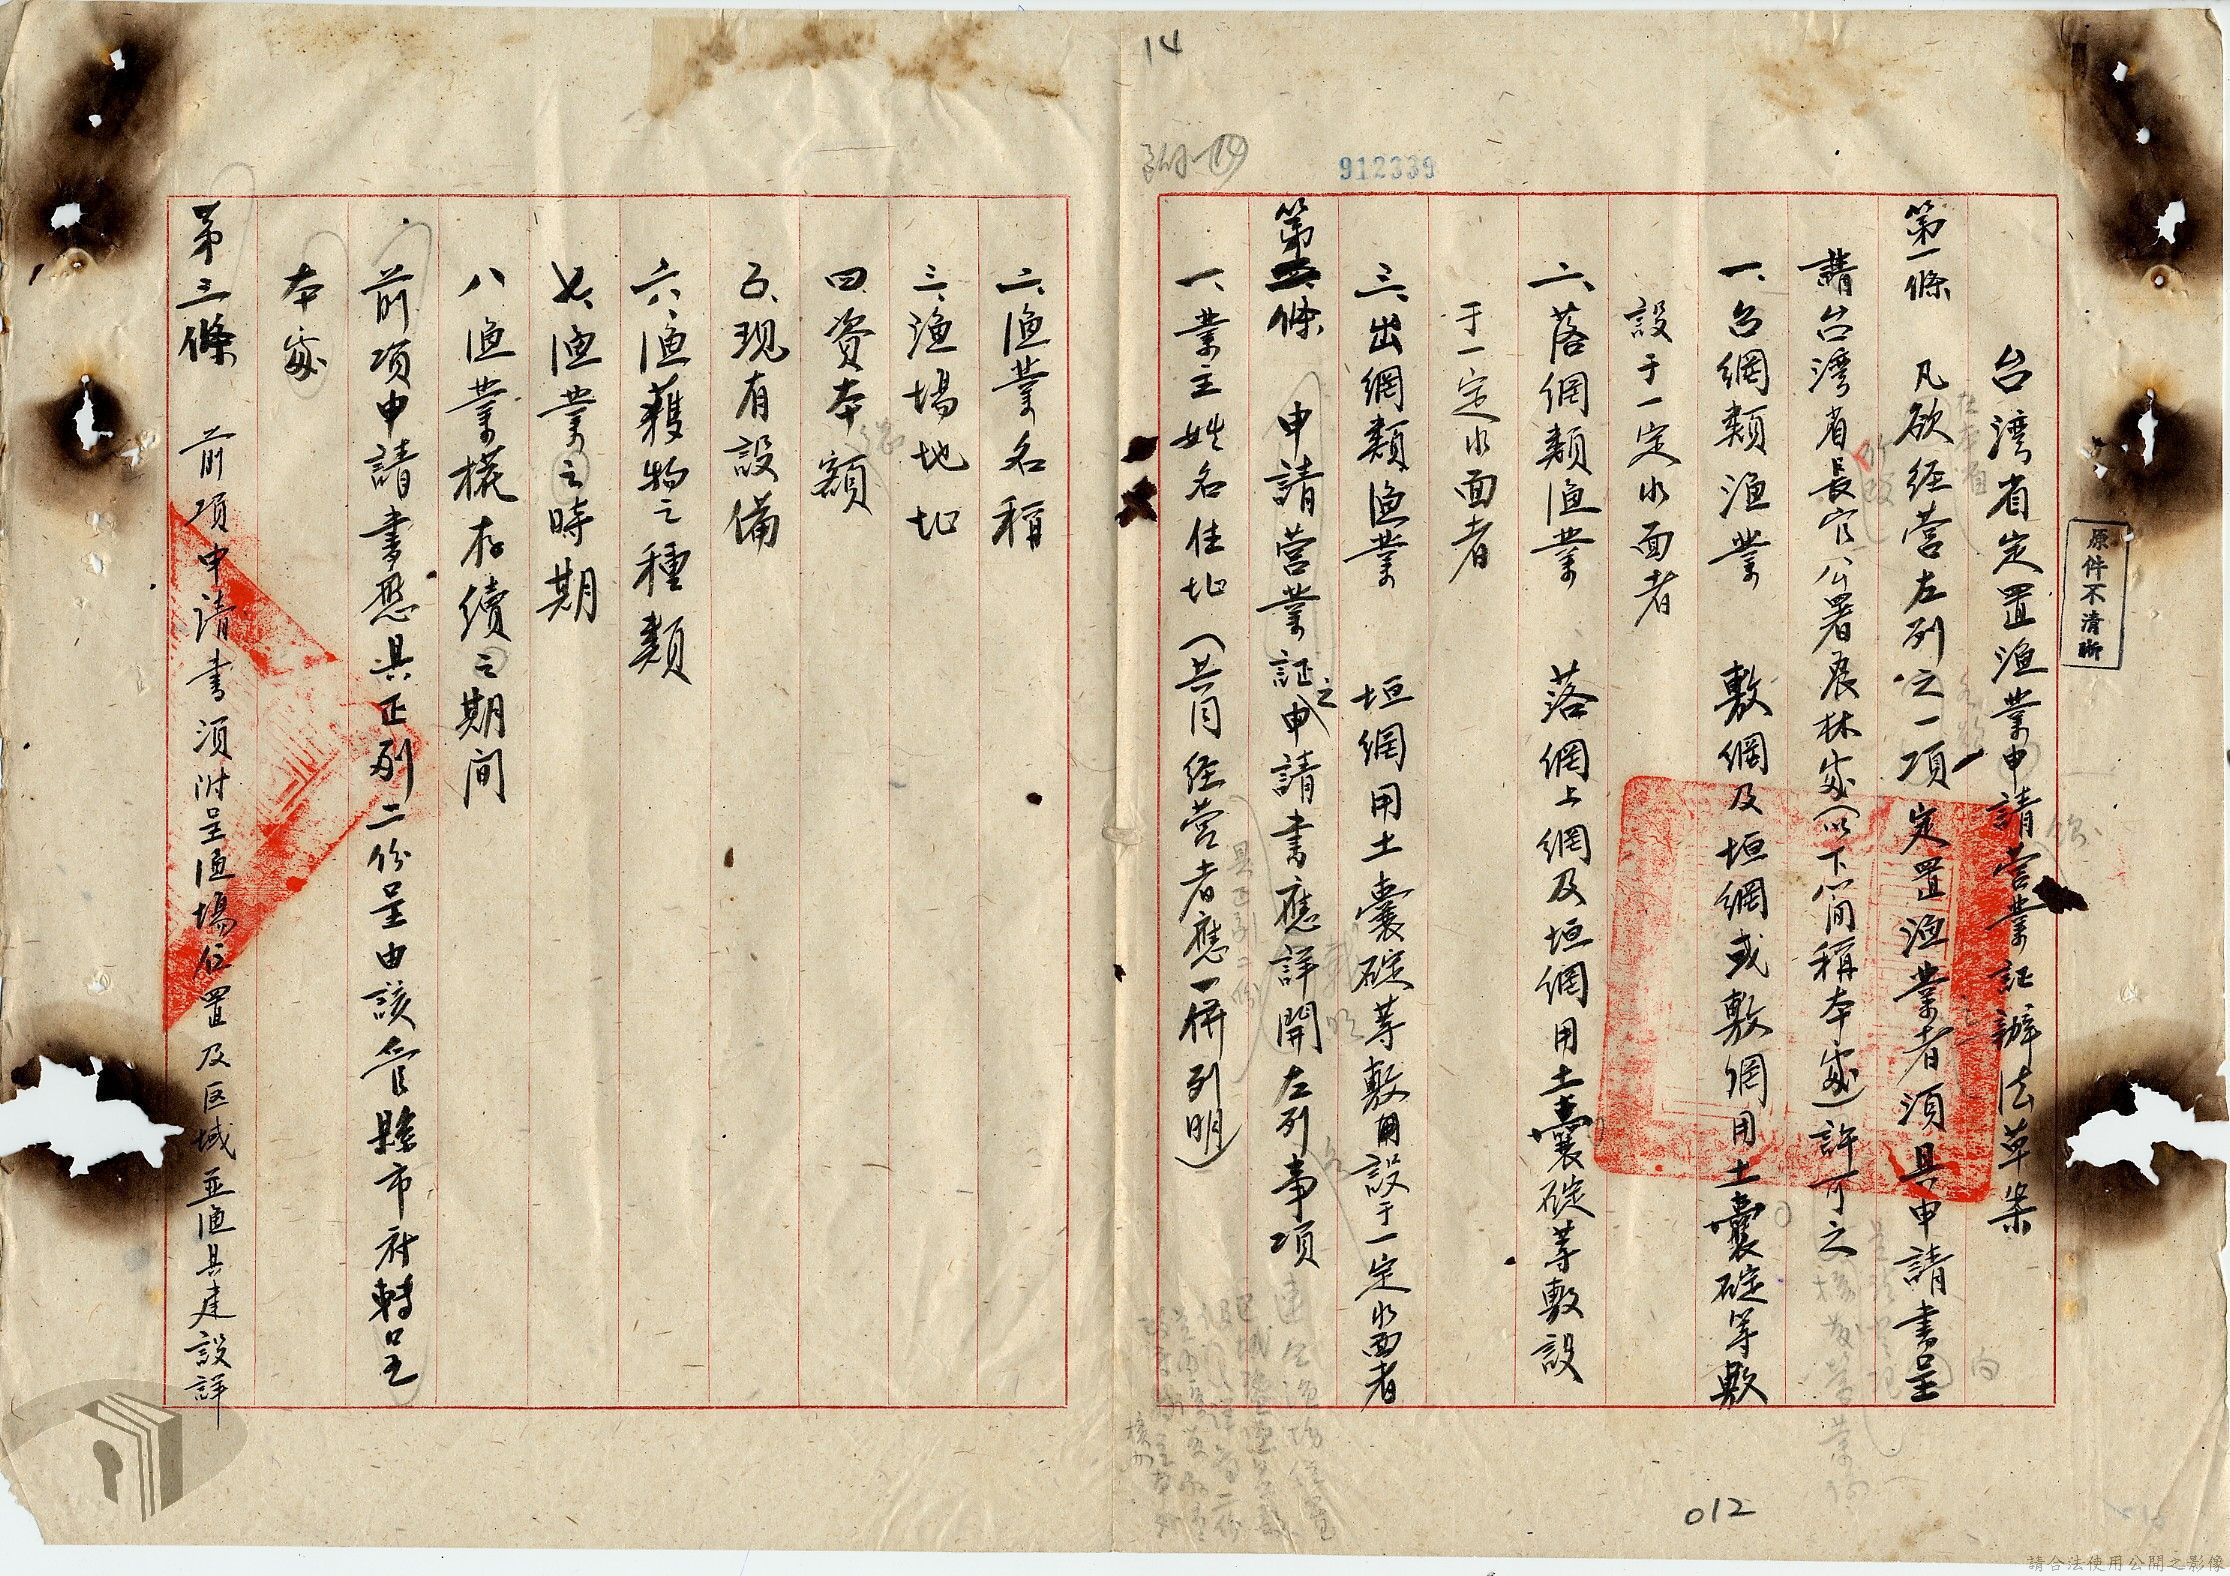 14
附一(14)
912339
原件不清晰
台湾省定置渔業申請营業証辦法草案
第一條　凡欲经营左列之一項定置渔業者須具申請書呈
請台湾省長官公署農林处(以下简稱本处)許可之
一、台網類渔業　敷網及垣網或敷網用土囊碇等敷
設于一定水面者
二、落網類渔業　落網上網及垣網用土囊碇等敷設
于一定水面者
三、出網類渔業　垣網用土囊碇等敷用設于一定水面者
第二條　申請营業証之申請書應詳開左列事項
一、業主姓名住址(共同经营者應一併列明)
二、渔業名稱
三、渔場地址
四、資本額
五、现有設備
六、渔獲物之種類
七、渔業之時期
八、渔業權存續之期间
前項申請書應具正副二份呈由該管縣市府轉呈
本处
第三條　前項申請書須附呈渔場位置及区域並渔具建設詳
012
請合法使用公開之影像